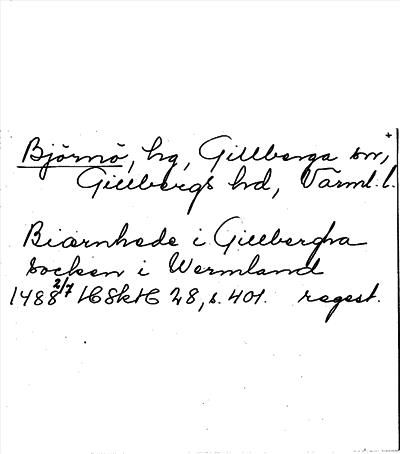 Björnö, hg, Gillberga sn,
Gillbergs hd, Värml. l.
Biærnhede i Gillbergha
Socken i Wermland
1488 2/7 HSkH 28, s. 401. regest.